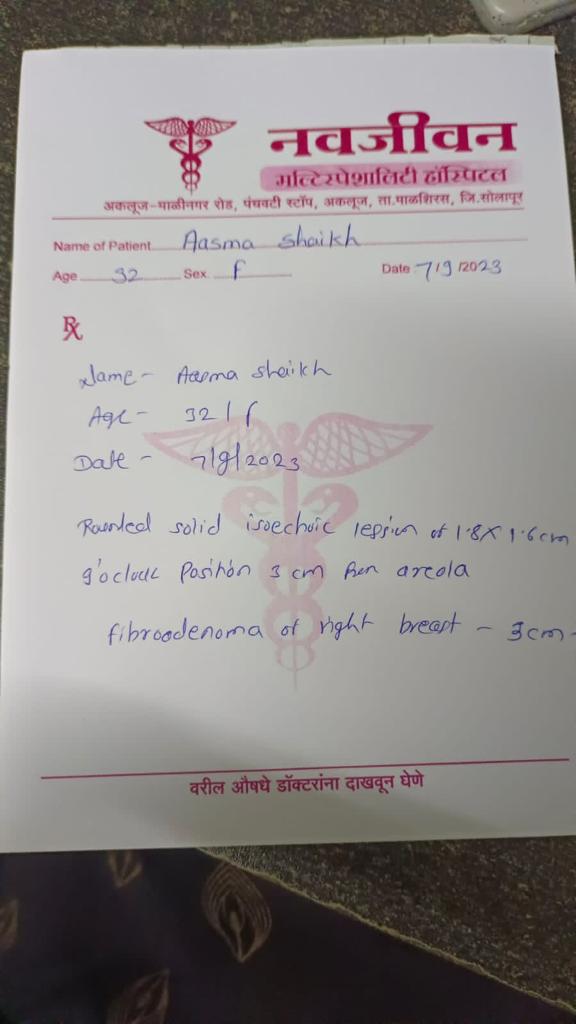 नवजीवन
मल्टिस्पेशालिटी हॉस्पिटल
अकलूज-माळीनगर रोड, पंचवटी स्टॉप, अकलूज, ता.माळशिरस, जि.सोलापूर
Name of Patient Aasma Shaikh
Age 32 Sex F Date 7/9/2023
℞
Name - Aasma Shaikh
Age - 32/F
Date - 7/9/2023
Rounded solid isoechoic lession of 1.8 X 1.6 cm
9'oclock Position 3 cm from areola
fibroadenoma of right breast - 3cm-
वरील औषधे डॉक्टरांना दाखवून घेणे